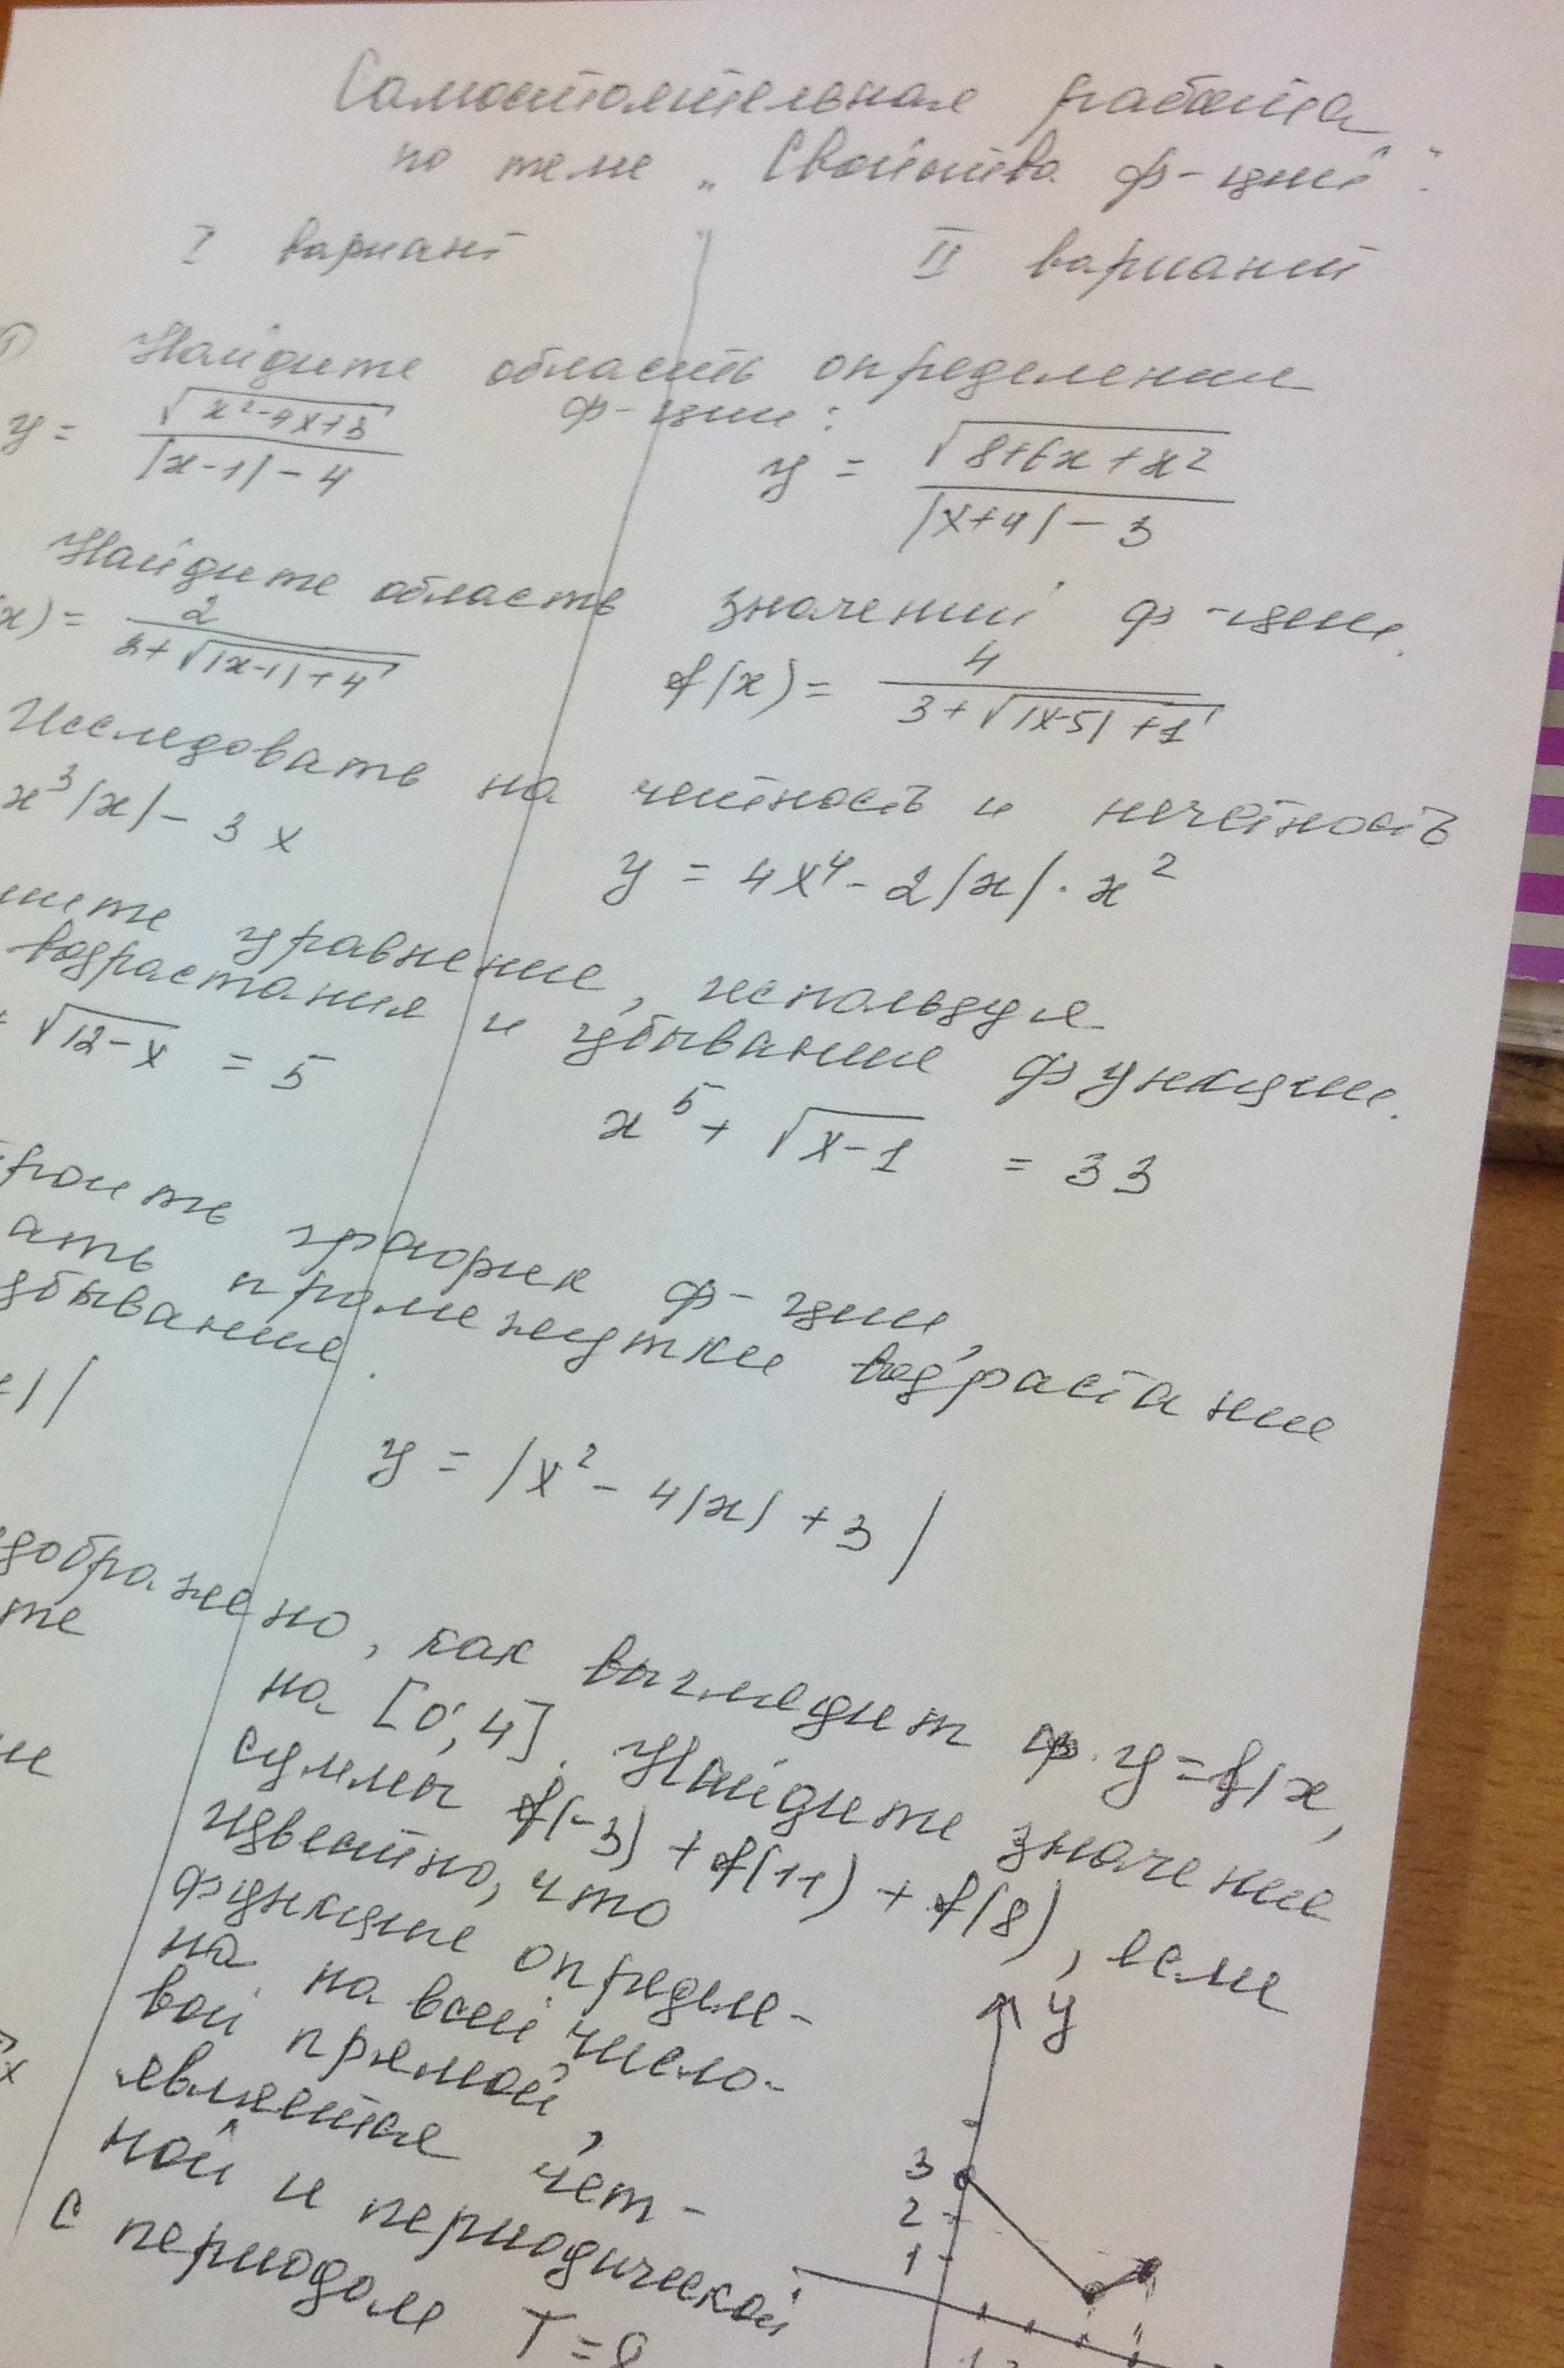 Самостоятельная работа
по теме „Свойства ф-ций".
I вариант
II вариант
1) Найдите область определения
ф-ции:
y = √(x²-4x+3) / (|x-1|-4)
y = √(8+6x+x²) / (|x+4|-3)
Найдите область значений ф-ции.
x) = 2 / (3+√(|x-1|+4))
f(x) = 4 / (3+√(|x-5|+1))
Исследовать на четность и нечетность
x³|x| - 3x
y = 4x⁴ - 2|x|·x²
шите уравнение, используя
возрастания и убывание функции.
√(12-x) = 5
x⁵ + √(x-1) = 33
троить график ф-ции,
ать промежутки возрастание
убывание.
1|
y = |x² - 4|x| + 3|
зображено, как выглядит ф. y=f(x,
те на [0; 4]. Найдите значение
суммы f(-3) + f(11) + f(8), если
известно, что
функция определе-
на на всей число-
вой прямой,
является чет-
ной и периодической
с периодом T=8
y
3
2
1
x